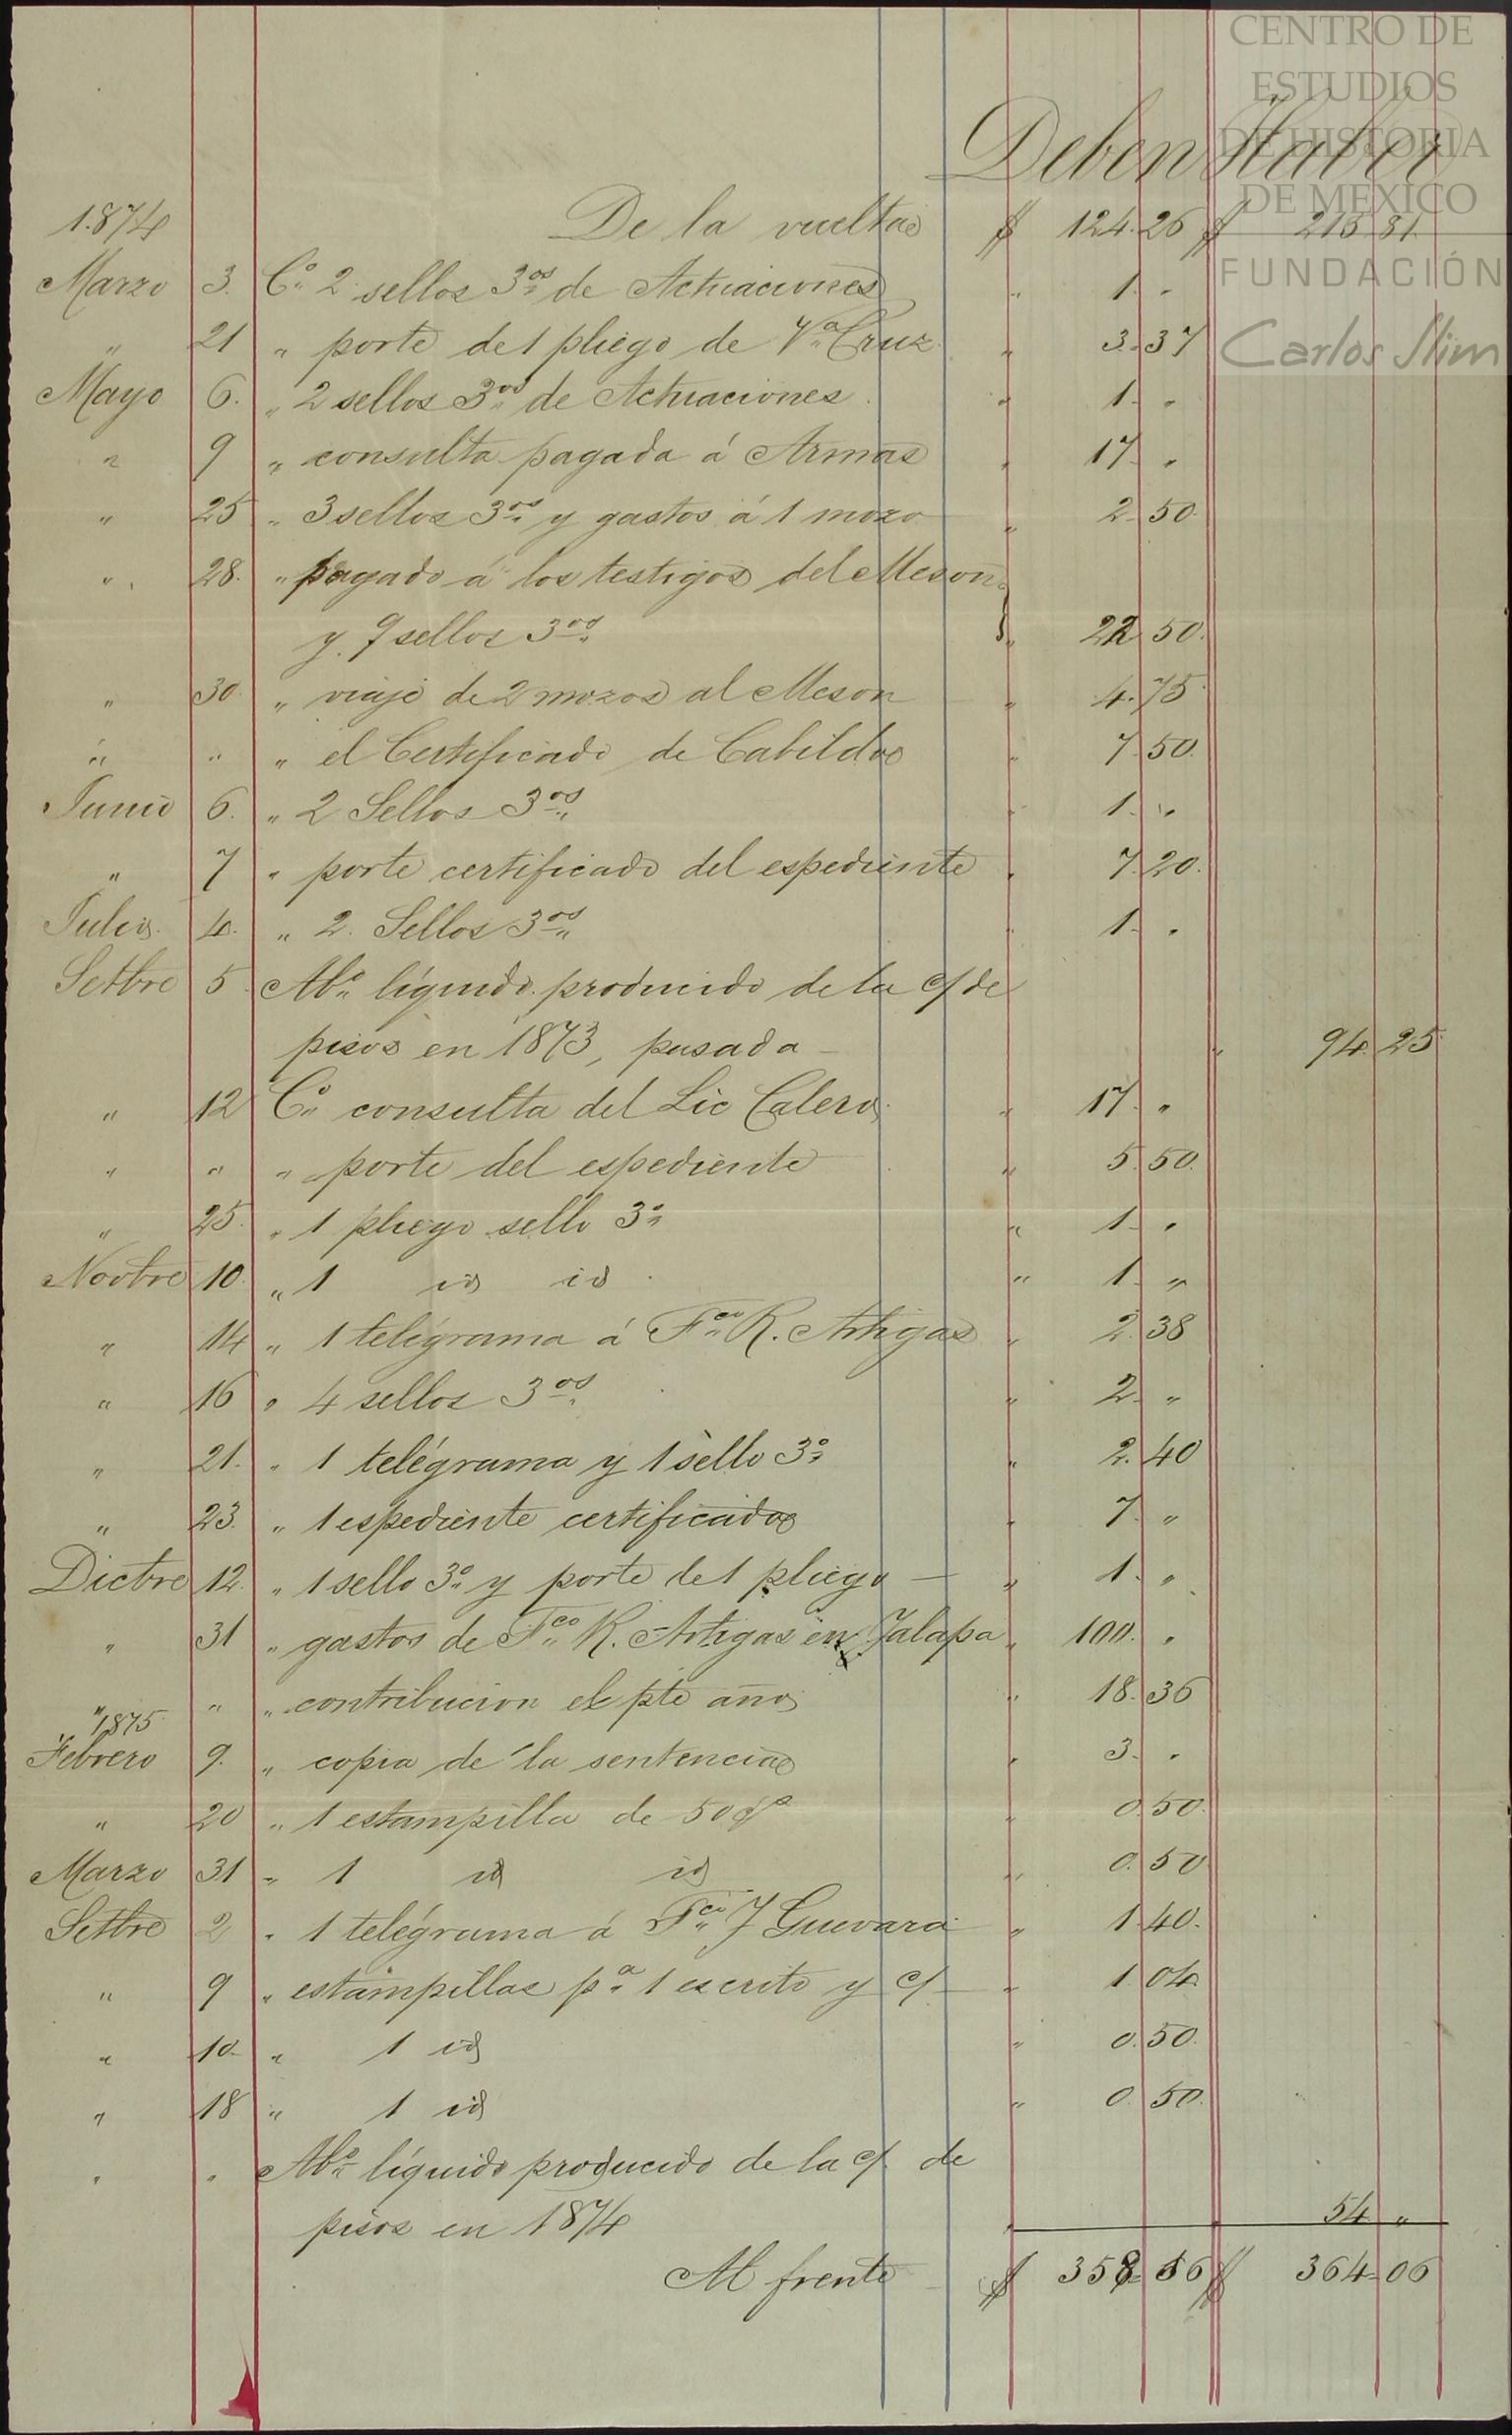 CENTRO DE
ESTUDIOS
DE HISTORIA
DE MEXICO
FUNDACIÓN
Carlos Slim
Deben Haber
1.874 De la vuelta $ 124.26 $ 215 81.
Marzo 3. Co. 2 sellos 3os de Actuaciones " 1. "
" 21 " porte de 1 pliego de Va Cruz " 3.37
Mayo 6. " 2 sellos 3os de Actuaciones " 1. "
" 9 " consulta pagada á Armas " 17. "
" 25 " 3 sellos 3os y gastos á 1 mozo " 2.50
" 28. " pagado á los testigos del Meson
y 9 sellos 3os " 22 50.
" 30. " viaje de 2 mozos al Meson " 4.75
" " " el Certificado de Cabildo " 7.50.
Junio 6. " 2 Sellos 3os " 1. "
" 7 " porte certificado del espediente " 7.20.
Julio 4. " 2. Sellos 3os " 1. "
Setbre 5 Abo líquido producido de la c/ de
pisos en 1873, pasada " 94 25
" 12 Co consulta del Lic Calero " 17. "
" " " porte del espediente " 5.50.
" 25. " 1 pliego sello 3o " 1. "
Novbre 10. " 1 id id " 1. "
" 14 " 1 telégrama á Fco R. Artigas " 2.38
" 16 " 4 sellos 3os " 2. "
" 21. " 1 telégrama y 1 sello 3o " 2.40
" 23. " 1 espediente certificado " 7. "
Dicbre 12. " 1 sello 3o y porte de 1 pliego " 1. "
" 31 " gastos de Fco R. Artigas en Jalapa " 100. "
" " " contribucion el pte año " 18.36
1875
Febrero 9. " copia de la sentencia " 3. "
" 20 " 1 estampilla de 50 " 0.50.
Marzo 31 " 1 id id " 0.50
Setbre 2 " 1 telégrama á Fco J Guevara " 1.40.
" 9 " estampillas pa 1 escrito y c/ " 1.04
" 10. " 1 id " 0.50.
" 18 " 1 id " 0.50.
" " Abo líquido producido de la c/ de
pisos en 1874 54 "
Al frente $ 358 56 $ 364.06